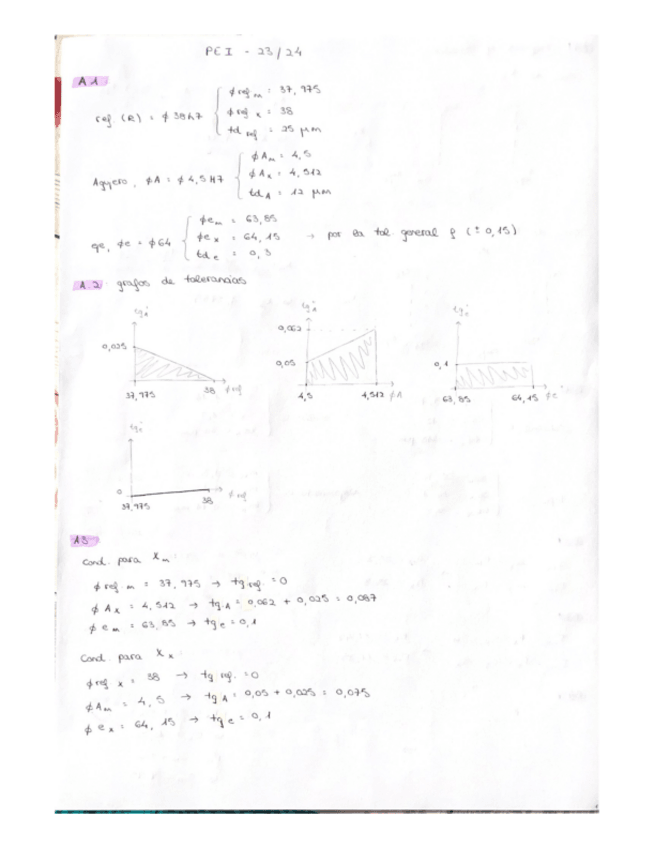 PEI - 23/24
A1
ref. (R) = ϕ 38h7
ϕ ref m = 37,975
ϕ ref x = 38
td ref = 25 μm
Agujero, ϕA = ϕ 4,5 H7
ϕ Am = 4,5
ϕ Ax = 4,512
td A = 12 μm
ϕe = ϕ64
ϕ em = 63,85
ϕ ex = 64,15 → por la tol. general (± 0,15)
td e = 0,3
A.2 grafos de tolerancias
0,025
37,975 38 ϕ ref
0,062
0,05
4,5 4,512 ϕA
0,1
63,85 64,15 ϕe
0
37,975 38 ϕ ref
A3
Cond. para Xm:
ϕ ref m = 37,975 → tg ref. = 0
ϕ Ax = 4,512 → tg A = 0,062 + 0,025 = 0,087
ϕ em = 63,85 → tg e = 0,1
Cond. para Xx:
ϕ ref x = 38 → tg ref. = 0
ϕ Am = 4,5 → tg A = 0,05 + 0,025 = 0,075
ϕ ex = 64,15 → tg e = 0,1